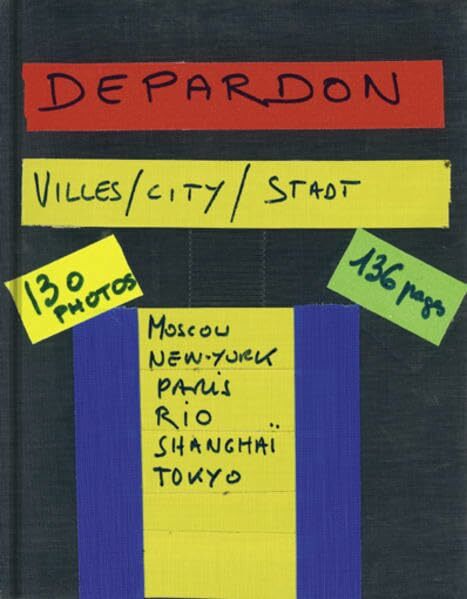 DEPARDON
VILLES/CITY/STADT
130
PHOTOS
136 pages
MOSCOW
NEW-YORK
PARIS
RIO
SHANGHAÏ
TOKYO